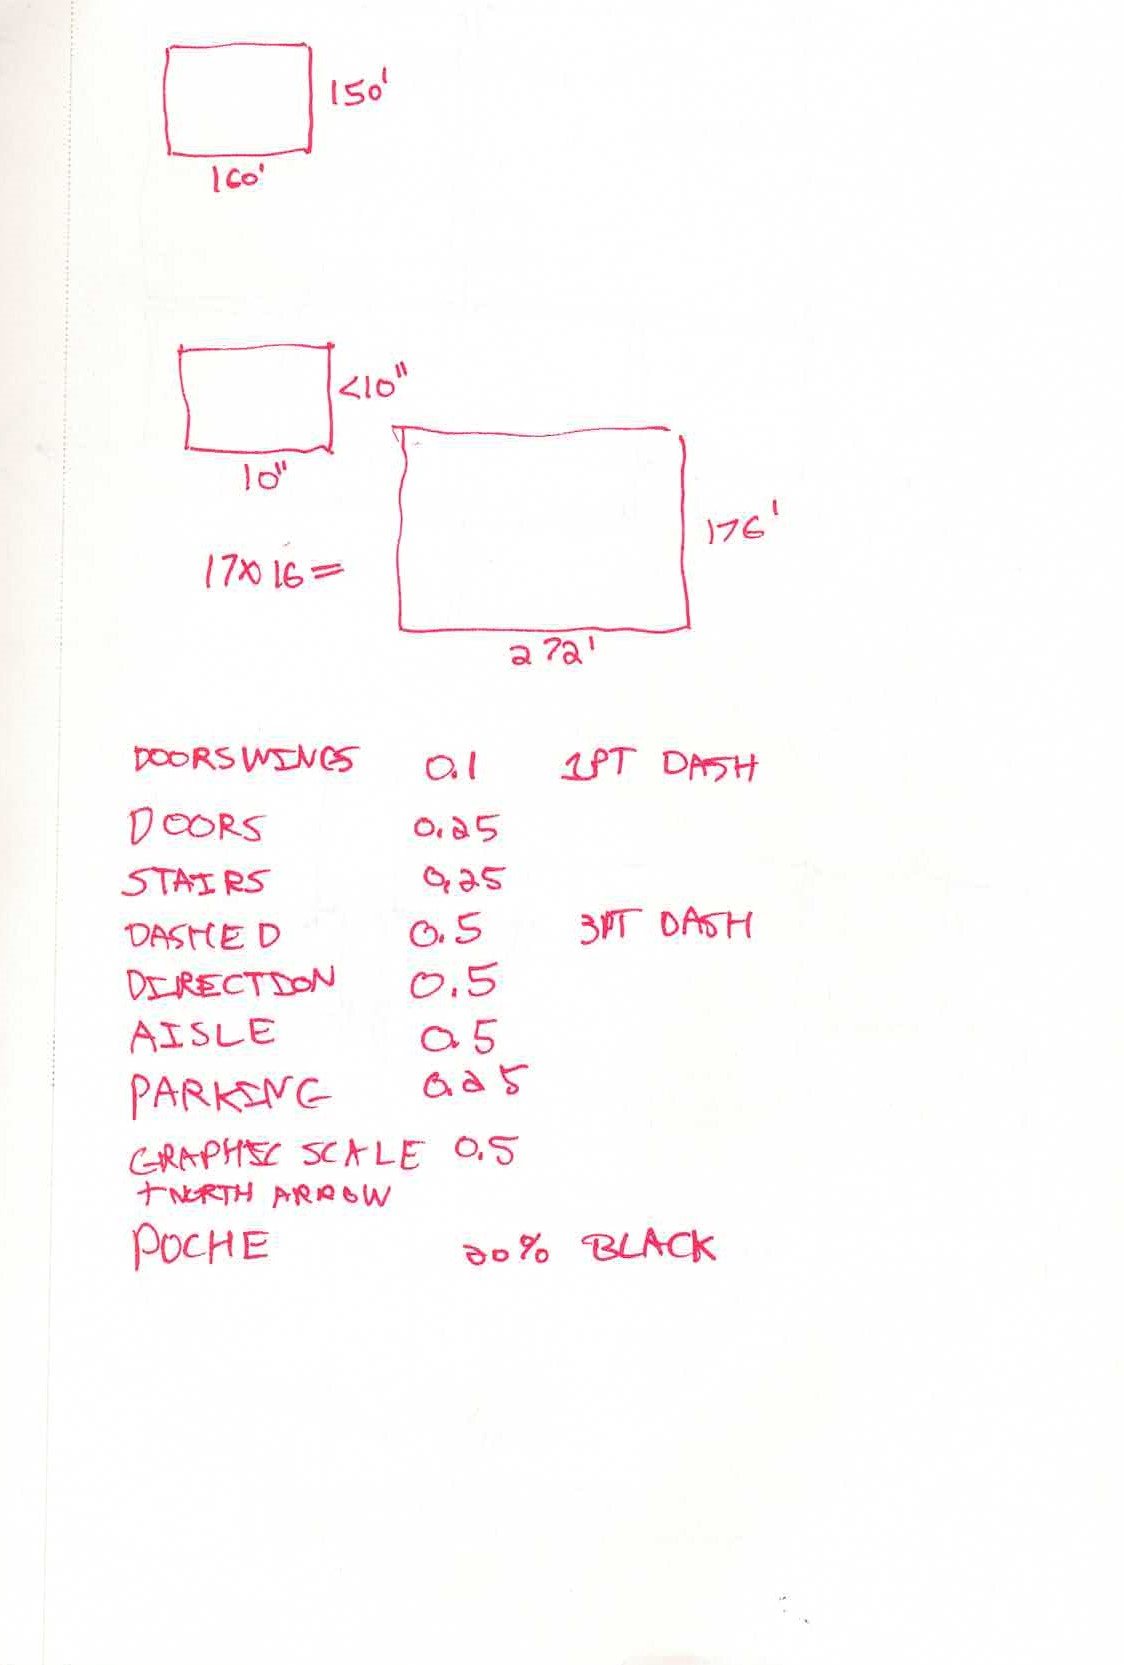 150'
160'
<10"
10"
17x16=
176'
272'
DOORSWINGS 0.1 1PT DASH
DOORS 0.25
STAIRS 0.25
DASHED 0.5 3PT DASH
DIRECTION 0.5
AISLE 0.5
PARKING 0.25
GRAPHIC SCALE 0.5
+NORTH ARROW
POCHE 20% BLACK